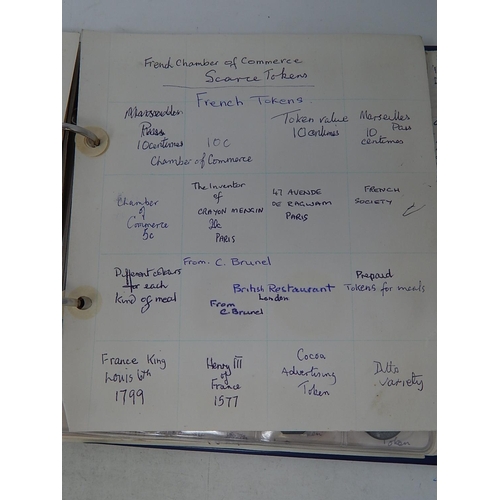 French Chamber of Commerce
Scarce Tokens
French Tokens
Pass
10 centimes
10C
Chamber of Commerce
Token value
10 centimes
Marseilles
Pass
10
centimes
Chamber
of
Commerce
5c
The Inventor
of
CRAYON MENGIN
20c
PARIS
47 AVENDE
DE RAGUAM
PARIS
FRENCH
SOCIETY
From. C. Brunel
Different colours
for each
kind of meal
British Restaurant
London
From
C Brunel
Prepaid
Tokens for meals
France King
Louis 6th
1799
Henry III
of
France
1577
Cocoa
Advertising
Token
Ditto
variety
Token